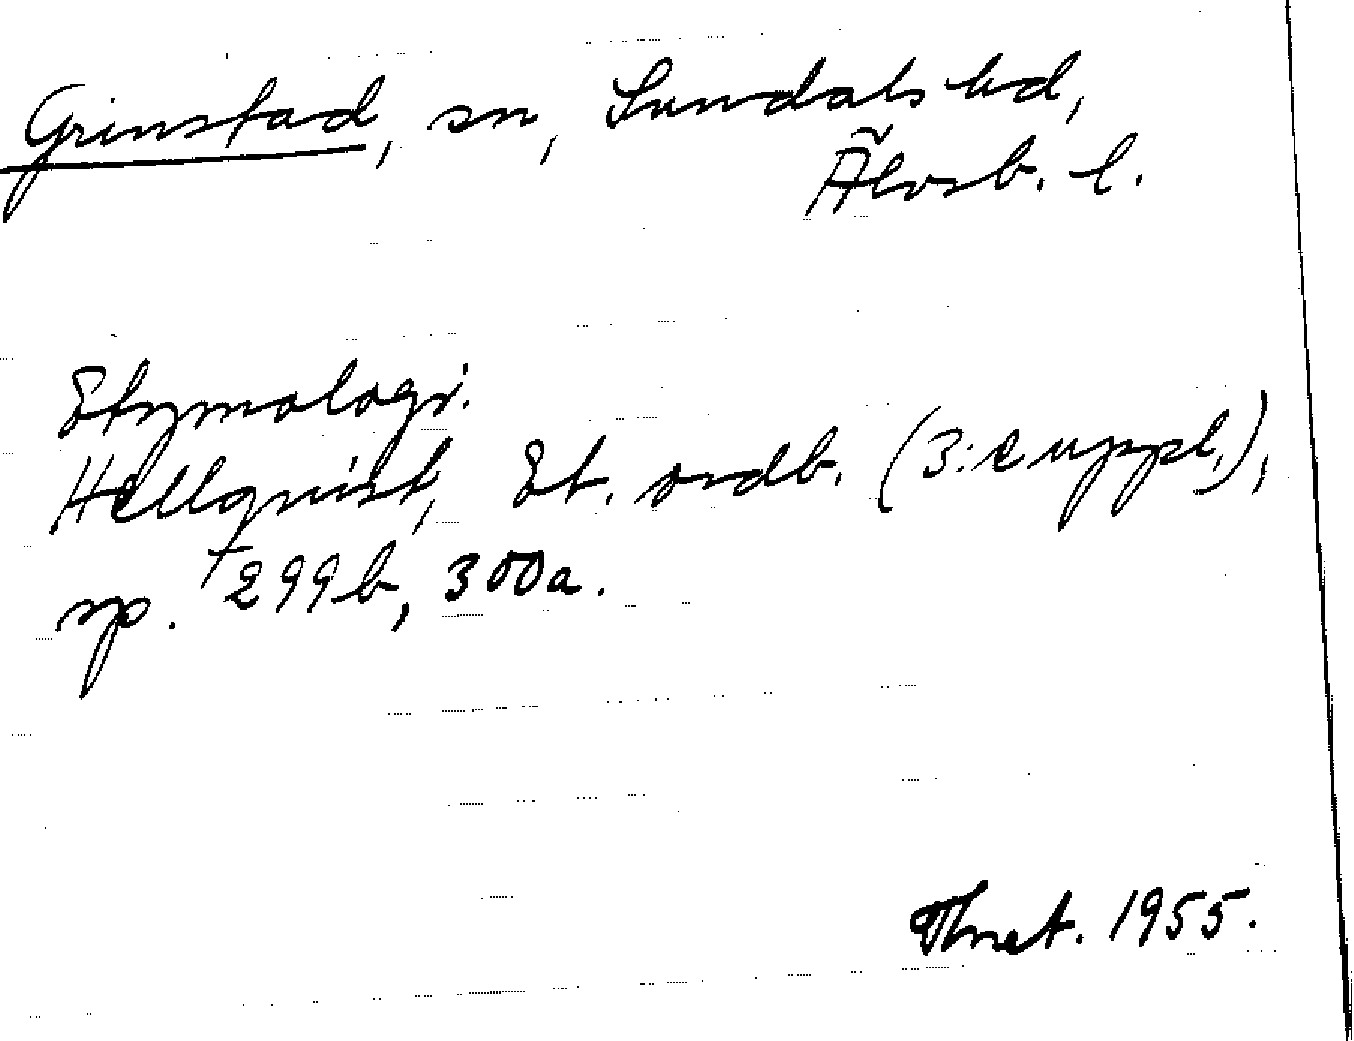 Grinstad, sn, Sundals hd,
Älvsb. l.
Etymologi.
Hellquist, Et. ordb. (3:e uppl.),
sp. 299b, 300a.
1955.